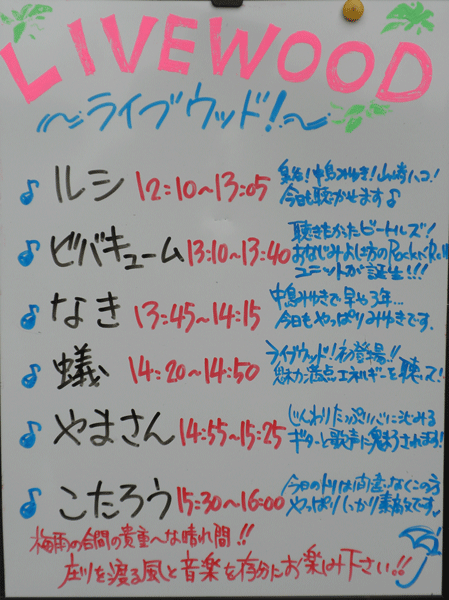 LIVEWOOD
~ライブウッド!~
ルシ 12:10~13:05
中島みゆき!山崎ハコ!
今日も聴かせます♪
ビバキューム 13:10~13:40
ビートルズ!
おなじみよしき方のRock'n Roll
ユニットが誕生!!!
なき 13:45~14:15
中島みゆきで早や3年...
今日もやっぱりみゆきです.
蟻 14:20~14:50
ライブウッド!初登場!!
魅力満点エネルギーを聴いて!
やまさん 14:55~15:25
じんわりたっぷり心に沁みる
ギターと歌声に魅うされます!
こたろう 15:30~16:00
今日のトリは間違いなくこの方
やっぱりしっかり素敵です
梅雨の合間の貴重な晴れ間!!
庄川を渡る風と音楽を存分にお楽しみ下さい!!